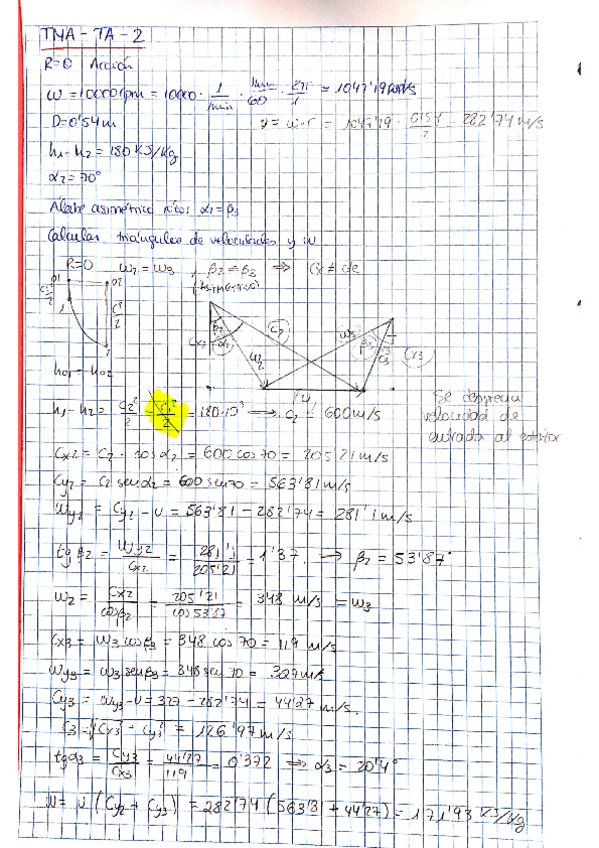 TMA - TA - 2
R=0 Acción
ω = 10000 rpm = 10000 · 1/min · min/60 · 2π/1 = 1047'19 rad/s
D=0'54m
u = ω·r = 1047'19 · 0'54/2 = 282'74 m/s
h1-h2 = 180 KJ/Kg
α2=70°
Álabe asimétrico α2=β3
Calcular triángulos de velocidades y W
R=0 ω2 = ω3 , β2 ≠ β3 ⇒ Cx ≠ cte
(Asimétrico)
h01 = h02
h1-h2 = C2²/2 - C1²/2 = 180·10³ → C2 = 600 m/s
Se desprecia
velocidad de
entrada al estator
Cx2 = C2 · cos α2 = 600 cos 70 = 205'21 m/s
Cy2 = C2 sen α2 = 600 sen 70 = 563'81 m/s
Wy2 = Cy2 - u = 563'81 - 282'74 = 281'1 m/s
tg β2 = Wy2/Cx2 = 281'1/205'21 = 1'37 → β2 = 53'87°
W2 = Cx2/cosβ2 = 205'21/cos 53'87 = 348 m/s = W3
Cx3 = W3 cosβ3 = 348 cos 70 = 119 m/s
Wy3 = W3 senβ3 = 348 sen 70 = 327 m/s
Cy3 = Wy3 - u = 327 - 282'74 = 44'27 m/s.
C3 = √Cx3² + Cy3² = 126'97 m/s
tgα3 = Cy3/Cx3 = 44'27/119 = 0'372 ⇒ α3 = 20'4°
W = u (Cy2 + Cy3) = 282'74 (563'81 + 44'27) = 171'93 KJ/Kg